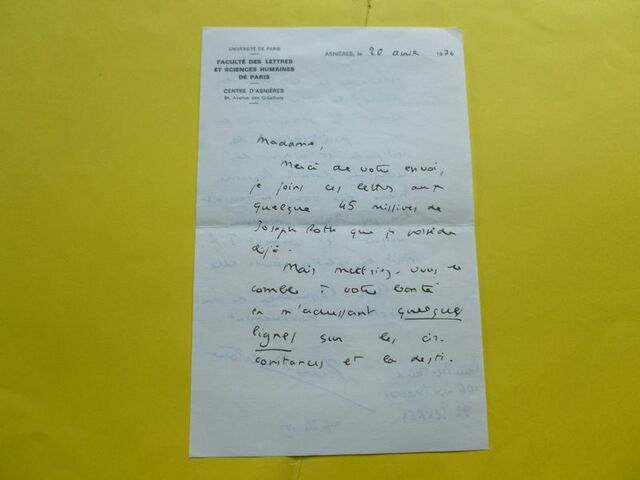 UNIVERSITÉ DE PARIS
FACULTÉ DES LETTRES
ET SCIENCES HUMAINES
DE PARIS
CENTRE D'ASNIÈRES
Avenue des Grésillons
ASNIÈRES, le 20 avril 19
Madame,
Merci de votre envoi,
je joins ces lettres aux
quelque 45 missives de
Joseph Roth que je possède
déjà.
Mais mettriez-vous le
comble à votre bonté
en m'adressant quelques
lignes sur les cir-
constances et la desti-